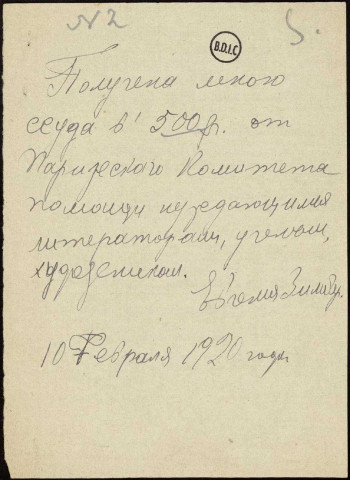 N 2
B.D.I.C
5.
Получена мною
ссуда в 500 фр. от
Парижского Комитета
помощи нуждающимся
литераторам, ученым,
художникам.
Евгения
10 Февраля 1920 года